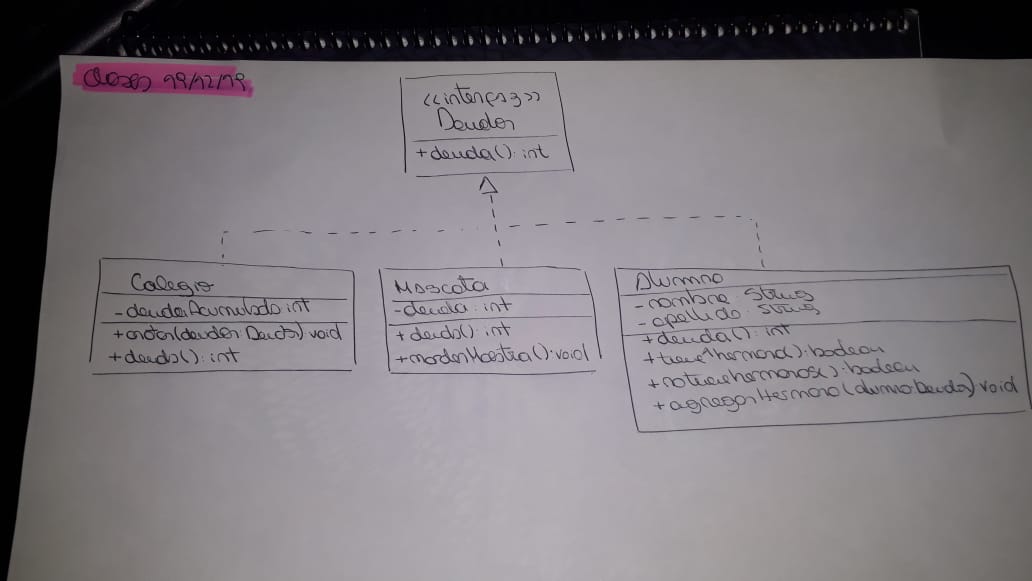 Clases 19/12/19
<<interfaz>>
Deudor
+deuda(): int
Colegio
-deudaAcumulada: int
+anotar(deudor: Deudor): void
+deuda(): int
Mascota
-deuda: int
+deuda(): int
+morderMaestra(): void
Alumno
-nombre: String
-apellido: String
+deuda(): int
+tiene1hermano(): boolean
+notienehermanos(): boolean
+agregarHermano(alumno: Deudor): void